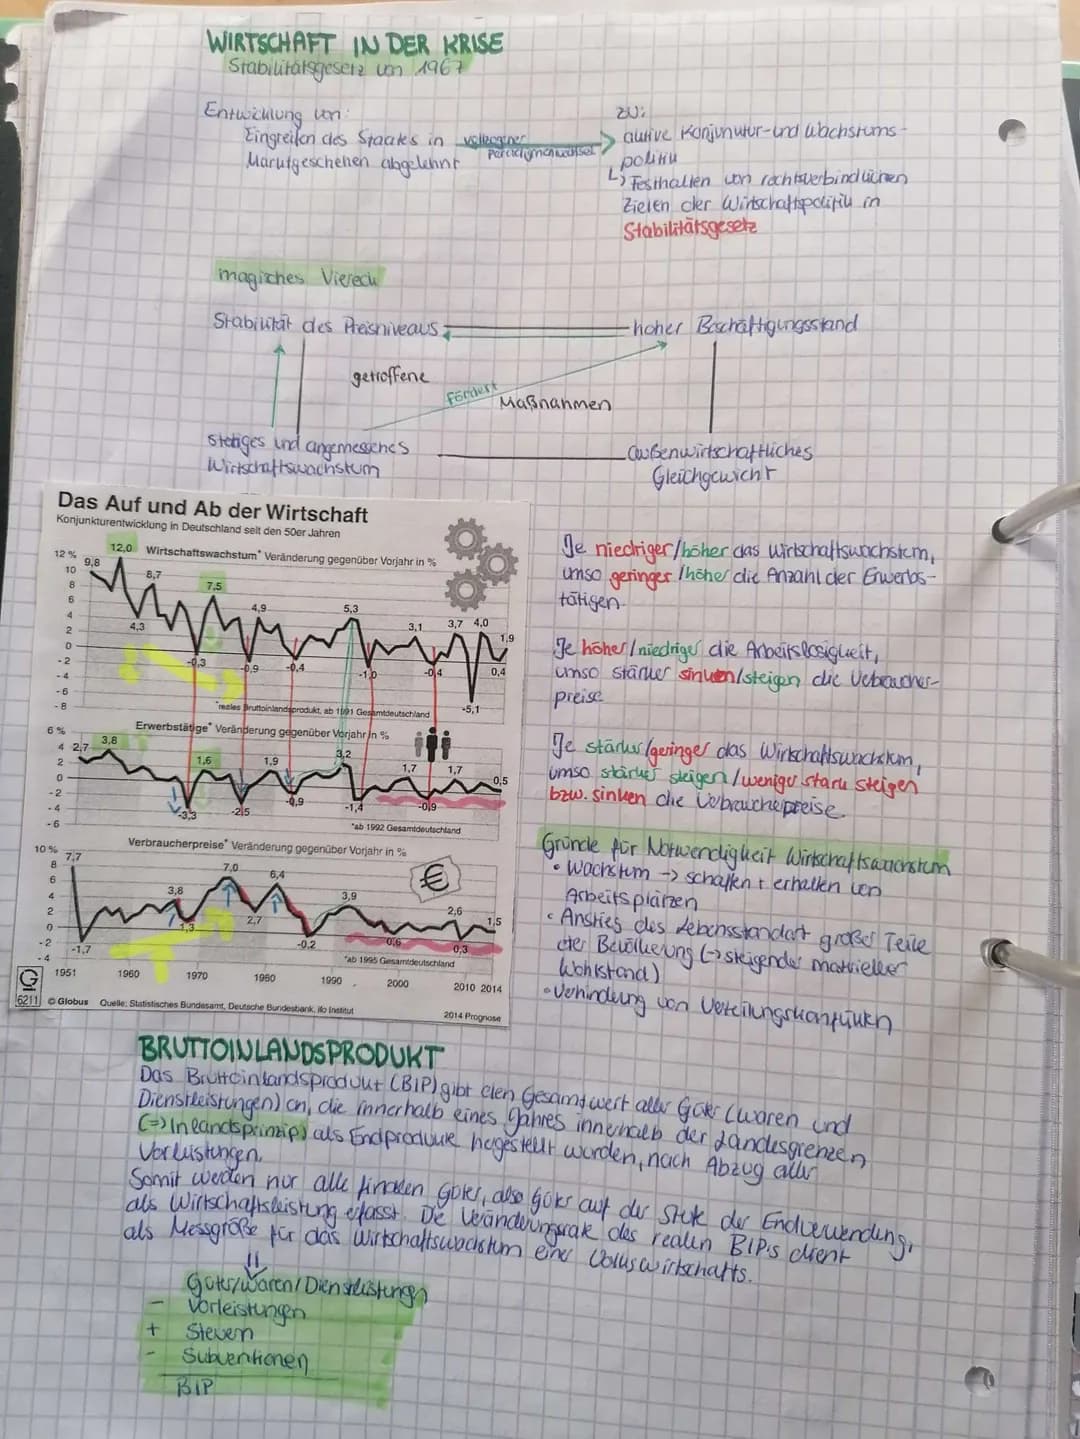 WIRTSCHAFT IN DER KRISE
Stabilitätsgesetz von 1967
Entwicklung von:
Eingreifen des Staates in
Marktgeschehen abgelehnt
vollzogener
Paradigmenwechsel
zu:
aktive Konjunktur-und Wachstums-
politik
↳ Festhalten von rechtsverbindlichen
Zielen der Wirtschaftspolitik in
Stabilitätsgesetz
magisches Viereck
Stabilität des Preisniveaus
hoher Beschäftigungsstand
getroffene
fördert
Maßnahmen
stetiges und angemessenes
Wirtschaftswachstum
außenwirtschaftliches
Gleichgewicht
Das Auf und Ab der Wirtschaft
Konjunkturentwicklung in Deutschland seit den 50er Jahren
Wirtschaftswachstum* Veränderung gegenüber Vorjahr in %
12 %
10
8
6
4
2
0
-2
-4
-6
-8
9,8
12,0
4,3
8,7
-0,3
7,5
-0,9
4,9
-0,4
5,3
-1,0
3,1
-0,4
3,7
4,0
-5,1
0,4
1,9
*reales Bruttoinlandsprodukt, ab 1991 Gesamtdeutschland
Erwerbstätige* Veränderung gegenüber Vorjahr in %
6 %
4
2
0
-2
-4
-6
2,7
3,8
-3,3
1,6
-2,5
1,9
-0,9
3,2
-1,4
1,7
-0,9
1,7
0,5
*ab 1992 Gesamtdeutschland
Verbraucherpreise* Veränderung gegenüber Vorjahr in %
10 %
8
6
4
2
0
-2
-4
7,7
-1,7
3,8
1,3
7,0
2,7
6,4
-0,2
3,9
0,6
2,6
0,3
1,5
€
*ab 1995 Gesamtdeutschland
1951
1960
1970
1980
1990
2000
2010 2014
G
6211
© Globus
Quelle: Statistisches Bundesamt, Deutsche Bundesbank, ifo Institut
2014 Prognose
Je niedriger/höher das Wirtschaftswachstum,
umso geringer/höher die Anzahl der Erwerbs-
tätigen.
Je höher/niedriger die Arbeitslosigkeit,
umso stärker sinken/steigen die Verbraucher-
preise
Je stärker/geringer das Wirtschaftwachstum,
umso stärker steigen/weniger stark steigen
bzw. sinken die Verbraucherpreise
Gründe für Notwendigkeit Wirtschaftswachstum
• Wachstum -> schaffen + erhalten von
Arbeitsplätzen
• Anstieg des Lebensstandart großer Teile
der Bevölkerung (-> steigender materieller
Wohlstand)
• Verhinderung von Verteilungskonflikten
BRUTTOINLANDSPRODUKT
Das Bruttoinlandsprodukt (BIP) gibt den Gesamtwert aller Güter (Waren und
Dienstleistungen) an, die innerhalb eines Jahres innerhalb der Landesgrenzen
(=> Inlandsprinzip) als Endprodukte hergestellt wurden, nach Abzug aller
Vorleistungen.
Somit werden nur alle finalen Güter, also Güter auf der Stufe der Endverwendung,
als Wirtschaftsleistung erfasst. Die Veränderungsrate des realen BIP's dient
als Messgröße für das Wirtschaftswachstum einer Volkswirtschafts.
Güter/Waren/Dienstleistungen
- Vorleistungen
+ Steuern
- Subventionen
BIP